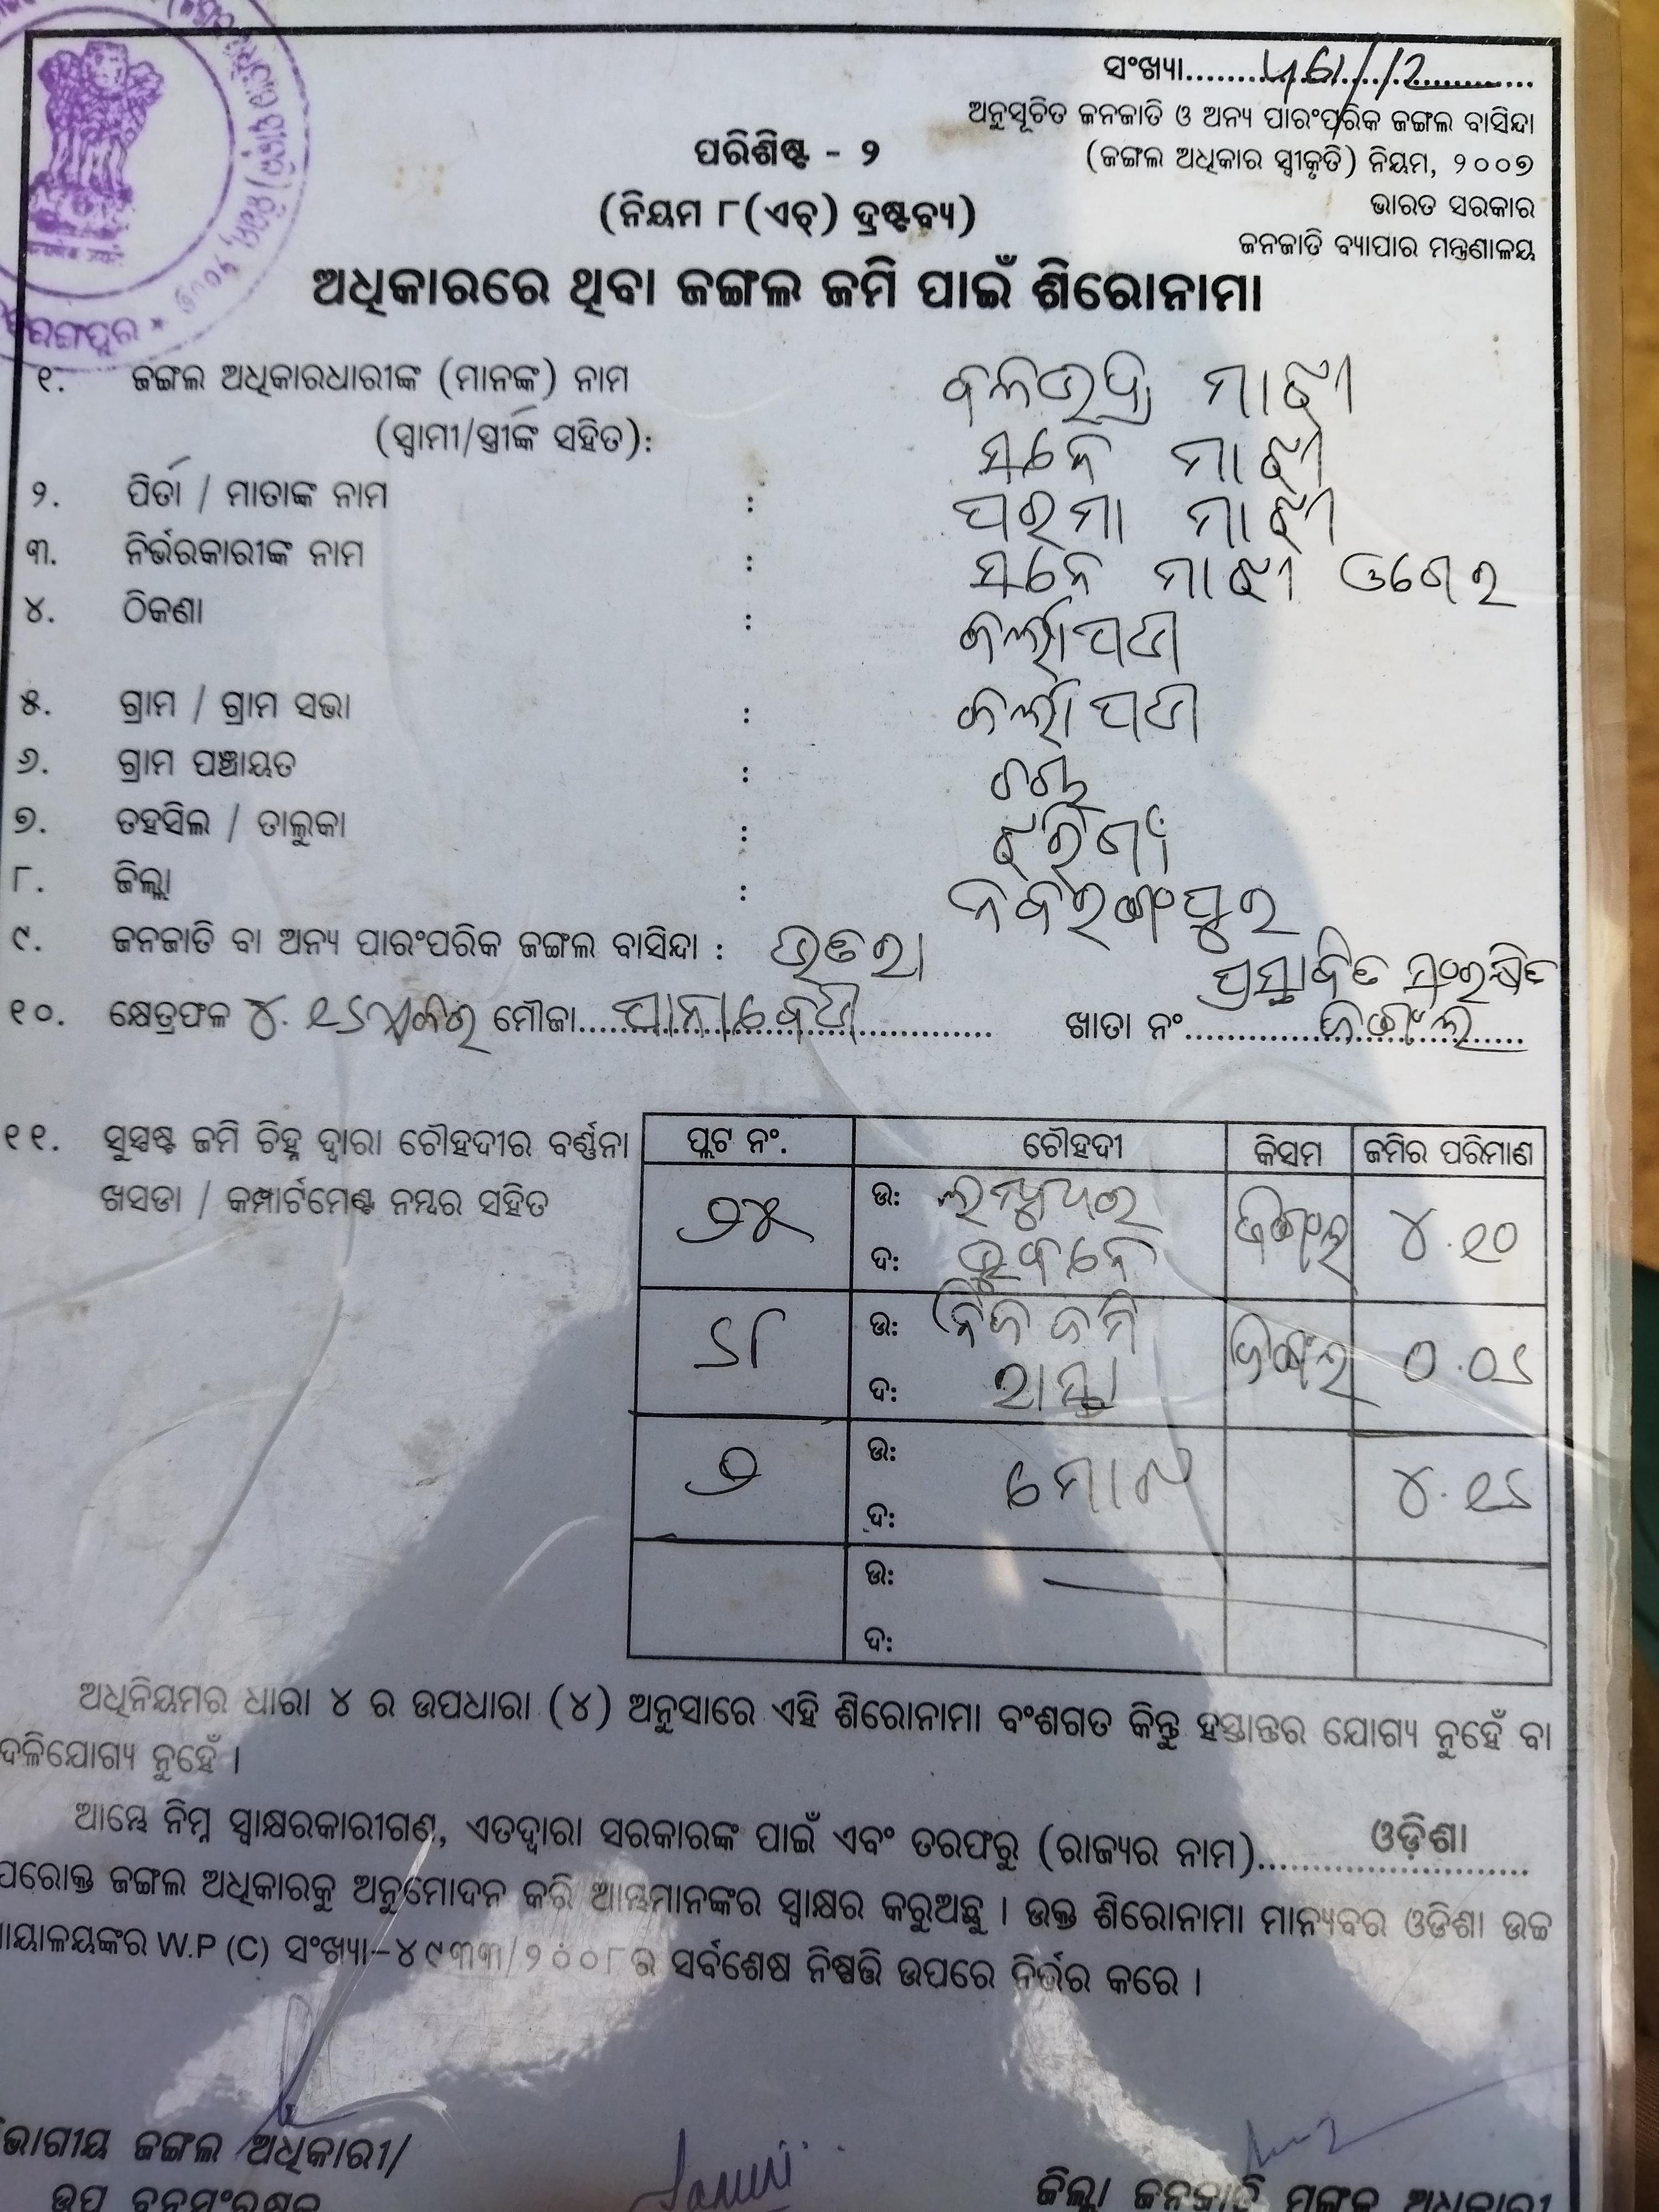 ସଂଖ୍ୟା
ଅନୁସୂଚିତ ଜନଜାତି ଓ ଅନ୍ୟ ପାରଂପରିକ ଜଙ୍ଗଲ ବାସିନ୍ଦା
(ଜଙ୍ଗଲ ଅଧିକାର ସ୍ୱୀକୃତି) ନିୟମ, ୨୦୦୭
ଭାରତ ସରକାର
ଜନଜାତି ବ୍ୟାପାର ମନ୍ତ୍ରଣାଳୟ
ପରିଶିଷ୍ଟ - ୨
(ନିୟମ ୮(ଏଚ୍) ଦ୍ରଷ୍ଟବ୍ୟ)
ଅଧିକାରରେ ଥିବା ଜଙ୍ଗଲ ଜମି ପାଇଁ ଶିରୋନାମା
୧. ଜଙ୍ଗଲ ଅଧିକାରଧାରୀଙ୍କ (ମାନଙ୍କ) ନାମ ମାଝୀ
(ସ୍ୱାମୀ/ସ୍ତ୍ରୀଙ୍କ ସହିତ): ମାଝୀ
୨. ପିତା / ମାତାଙ୍କ ନାମ : ମାଝୀ
୩. ନିର୍ଭରକାରୀଙ୍କ ନାମ : ମାଝୀ
୪. ଠିକଣା :
୫. ଗ୍ରାମ / ଗ୍ରାମ ସଭା :
୬. ଗ୍ରାମ ପଞ୍ଚାୟତ :
୭. ତହସିଲ / ତାଲୁକା : ଝରିଗାଁ
୮. ଜିଲ୍ଲା : ନବରଙ୍ଗପୁର
୯. ଜନଜାତି ବା ଅନ୍ୟ ପାରଂପରିକ ଜଙ୍ଗଲ ବାସିନ୍ଦା : ଭତରା
ପ୍ରସ୍ତାବିତ ସଂରକ୍ଷିତ
୧୦. କ୍ଷେତ୍ରଫଳ ୪.୧୬ ଏକର ମୌଜା ଖାତା ନଂ ଜଙ୍ଗଲ
୧୧. ସୁସ୍ପଷ୍ଟ ଜମି ଚିହ୍ନ ଦ୍ୱାରା ଚୌହଦୀର ବର୍ଣ୍ଣନା
ଖସଡା / କମ୍ପାର୍ଟମେଣ୍ଟ ନମ୍ବର ସହିତ
ପ୍ଲଟ ନଂ. ଚୌହଦୀ କିସମ ଜମିର ପରିମାଣ
୭୫ ଉ: ଜଙ୍ଗଲ ୪.୧୦
ଦ:
୬୮ ଉ: ନିଜ ଜମି ଜଙ୍ଗଲ ୦.୦୬
ଦ: ରାସ୍ତା
୨ ଉ: ମୋଟ ୪.୧୬
ଦ:
ଉ:
ଦ:
ଅଧିନିୟମର ଧାରା ୪ ର ଉପଧାରା (୪) ଅନୁସାରେ ଏହି ଶିରୋନାମା ବଂଶଗତ କିନ୍ତୁ ହସ୍ତାନ୍ତର ଯୋଗ୍ୟ ନୁହେଁ ବା
ଦଳିଯୋଗ୍ୟ ନୁହେଁ ।
ଆମ୍ଭେ ନିମ୍ନ ସ୍ୱାକ୍ଷରକାରୀଗଣ, ଏତଦ୍ୱାରା ସରକାରଙ୍କ ପାଇଁ ଏବଂ ତରଫରୁ (ରାଜ୍ୟର ନାମ) ଓଡ଼ିଶା
ପରୋକ୍ତ ଜଙ୍ଗଲ ଅଧିକାରକୁ ଅନୁମୋଦନ କରି ଆମ୍ଭମାନଙ୍କର ସ୍ୱାକ୍ଷର କରୁଅଛୁ । ଉକ୍ତ ଶିରୋନାମା ମାନ୍ୟବର ଓଡିଶା ଉଚ୍ଚ
ାୟାଳୟଙ୍କର W.P (C) ସଂଖ୍ୟା-୪୯୩୩/୨୦୦୮ ର ସର୍ବଶେଷ ନିଷ୍ପତ୍ତି ଉପରେ ନିର୍ଭର କରେ ।
ଭାଗୀୟ ଜଙ୍ଗଲ ଅଧିକାରୀ/
ଉପ ବନସଂରକ୍ଷକ
ଜିଲ୍ଲା ଜନଜାତି ମଙ୍ଗଳ ଅଧିକାରୀ